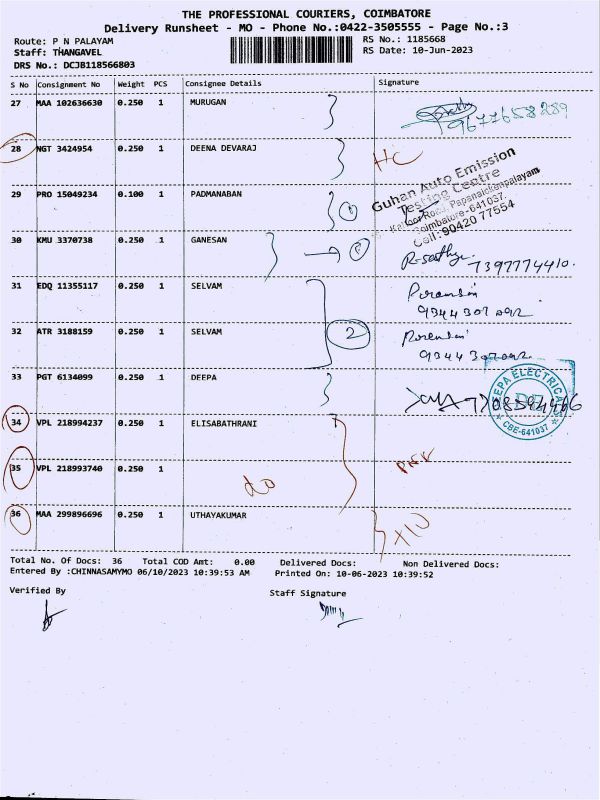 THE PROFESSIONAL COURIERS, COIMBATORE
Delivery Runsheet - MO - Phone No.:0422-3505555 - Page No.:3
Route: P N PALAYAM RS No.: 1185668
Staff: THANGAVEL RS Date: 10-Jun-2023
DRS No.: DCJB118566803
S No Consignment No Weight PCS Consignee Details Signature
27 MAA 102636630 0.250 1 MURUGAN
9677658289
28 NGT 3424954 0.250 1 DEENA DEVARAJ
Guhan Auto Emission
Testing Centre
Papanaickenpalayam
Coimbatore-641037
Cell: 90420 77554
29 PRO 15049234 0.100 1 PADMANABAN
30 KMU 3370738 0.250 1 GANESAN
7397774410.
31 EDQ 11355117 0.250 1 SELVAM
9344307092
32 ATR 3188159 0.250 1 SELVAM 2
9344307092
33 PGT 6134099 0.250 1 DEEPA
DEEPA ELECTRICAL
CBE-641037
34 VPL 218994237 0.250 1 ELISABATHRANI
35 VPL 218993740 0.250 1
36 MAA 299896696 0.250 1 UTHAYAKUMAR
Total No. Of Docs: 36 Total COD Amt: 0.00 Delivered Docs: Non Delivered Docs:
Entered By :CHINNASAMYMO 06/10/2023 10:39:53 AM Printed On: 10-06-2023 10:39:52
Verified By Staff Signature